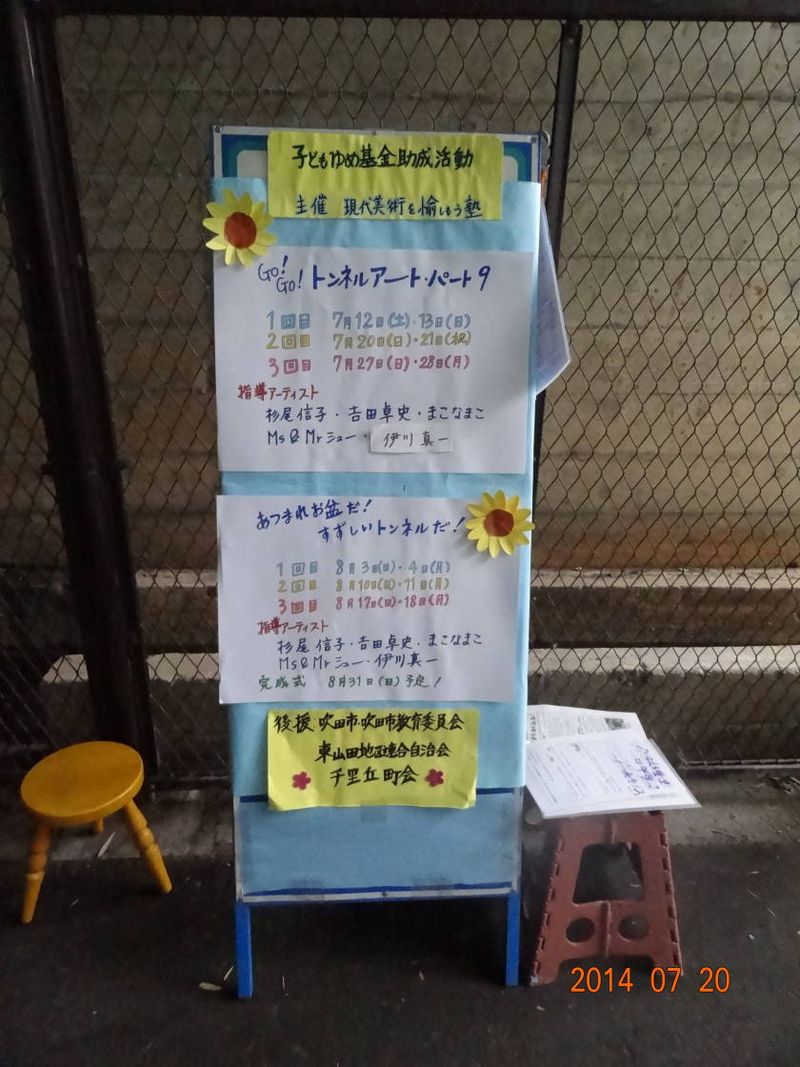 子どもゆめ基金助成活動
主催 現代美術を愉しもう塾
Go!
Go! トンネルアート・パート9
1回目 7月12日(土)・13日(日)
2回目 7月20日(日)・21日(祝)
3回目 7月27日(日)・28日(月)
指導アーティスト
杉尾信子・吉田卓史・まこなまこ
Ms&Mrシュー・伊川真一
あつまれお盆だ!
すずしいトンネルだ!
1回目 8月3日(日)・4日(月)
2回目 8月10日(日)・11日(月)
3回目 8月17日(日)・18日(月)
指導アーティスト
杉尾信子・吉田卓史・まこなまこ
Ms&Mrシュー・伊川真一
完成式 8月31日(日)予定!
後援 吹田市・吹田市教育委員会
東山田地区連合自治会
千里丘町会
2014 07 20